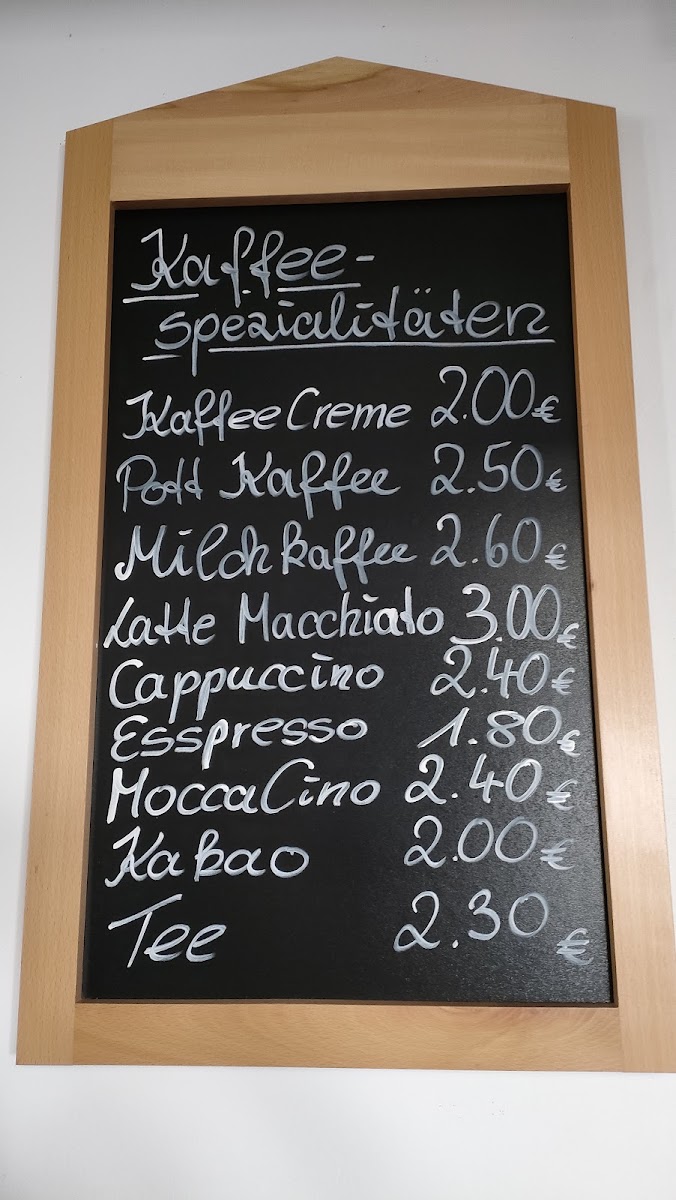 Kaffee-
spezialitäten
Kaffee Creme 2.00€
Pott Kaffee 2.50€
Milchkaffee 2.60€
Latte Macchiato 3.00€
Cappuccino 2.40€
Esspresso 1.80€
MoccaCino 2.40€
Kakao 2.00€
Tee 2.30€